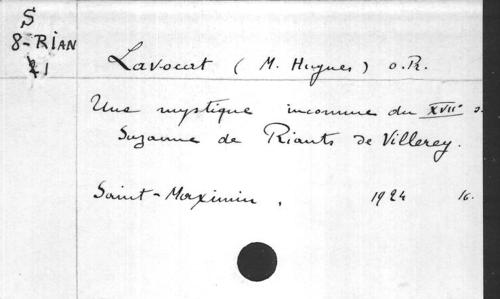 S
8-RIAN
21
Lavocat (M. Hugues) o.P.
Une mystique inconnue du XVIIe s.
Suzanne de Riants de Villerey.
Saint-Maximin, 1924 16.